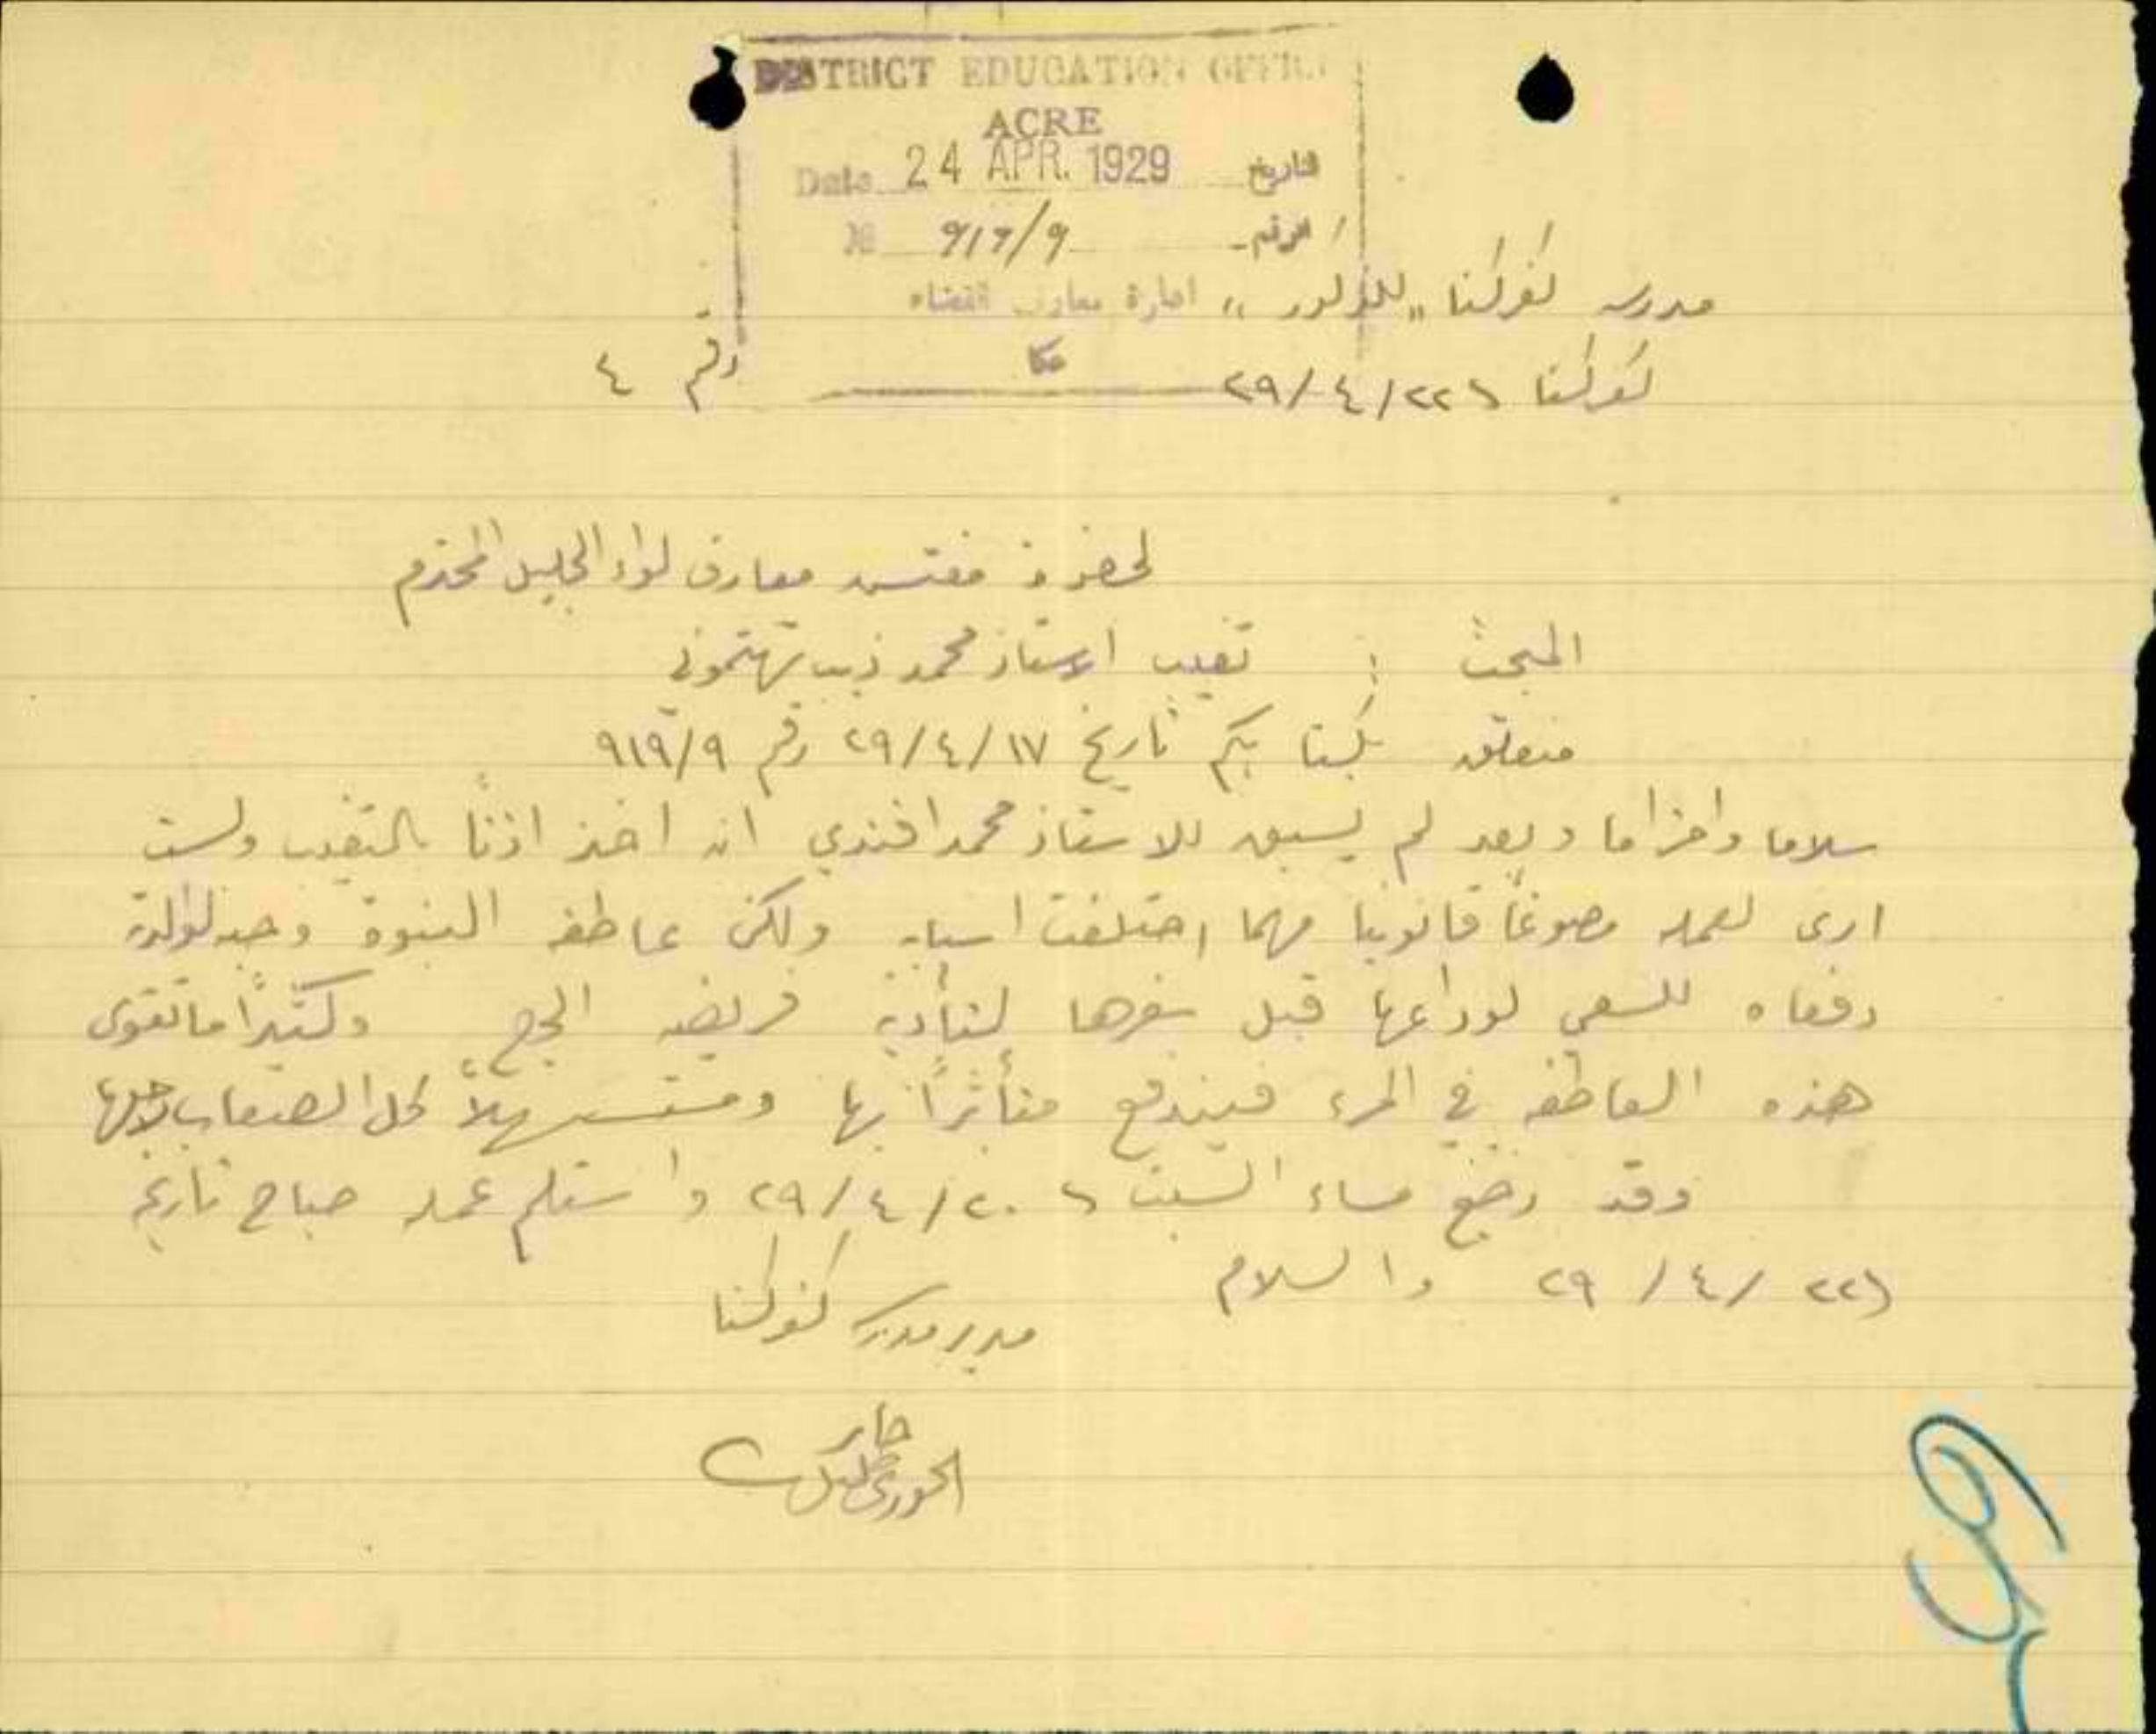 DISTRICT EDUCATION OFFICE
ACRE
Date 24 APR. 1929 التاريخ
№ 917/9 الرقم
ادارة معارف القضاء
عكا
مدرسة كفركنا "للذكور"
كفركنا ٢٩/٤/٢٢
رقم ٤
لحضرة مفتش معارف لواء الجليل المحترم
المبحث : تغيب الاستاذ محمد ذيب
متعلق بكتابكم تاريخ ٢٩/٤/١٧ رقم ٩١٩/٩
سلاما واحتراما وبعد لم يسبق للاستاذ محمد افندي ان اخذ اذنًا بالتغيب ولست
ارى لعمله مصوغاً قانونيا مهما اختلفت اسبابه ولكن عاطفة البنوة وحبه لوالدته
دفعاه للسعي لوداعها قبل سفرها لتأدية فريضة الحج، وكثيرًا ما تقوى
هذه العاطفة في المرء فيندفع متأثرًا بها ومستسهلاً كل الصعاب لاجلها
وقد رجع مساء السبت ٢٩/٤/٢٠ واستلم عمله صباح تاريخه
٢٩/٤/٢٢ والسلام
مدير مدرسة كفركنا
الخوري